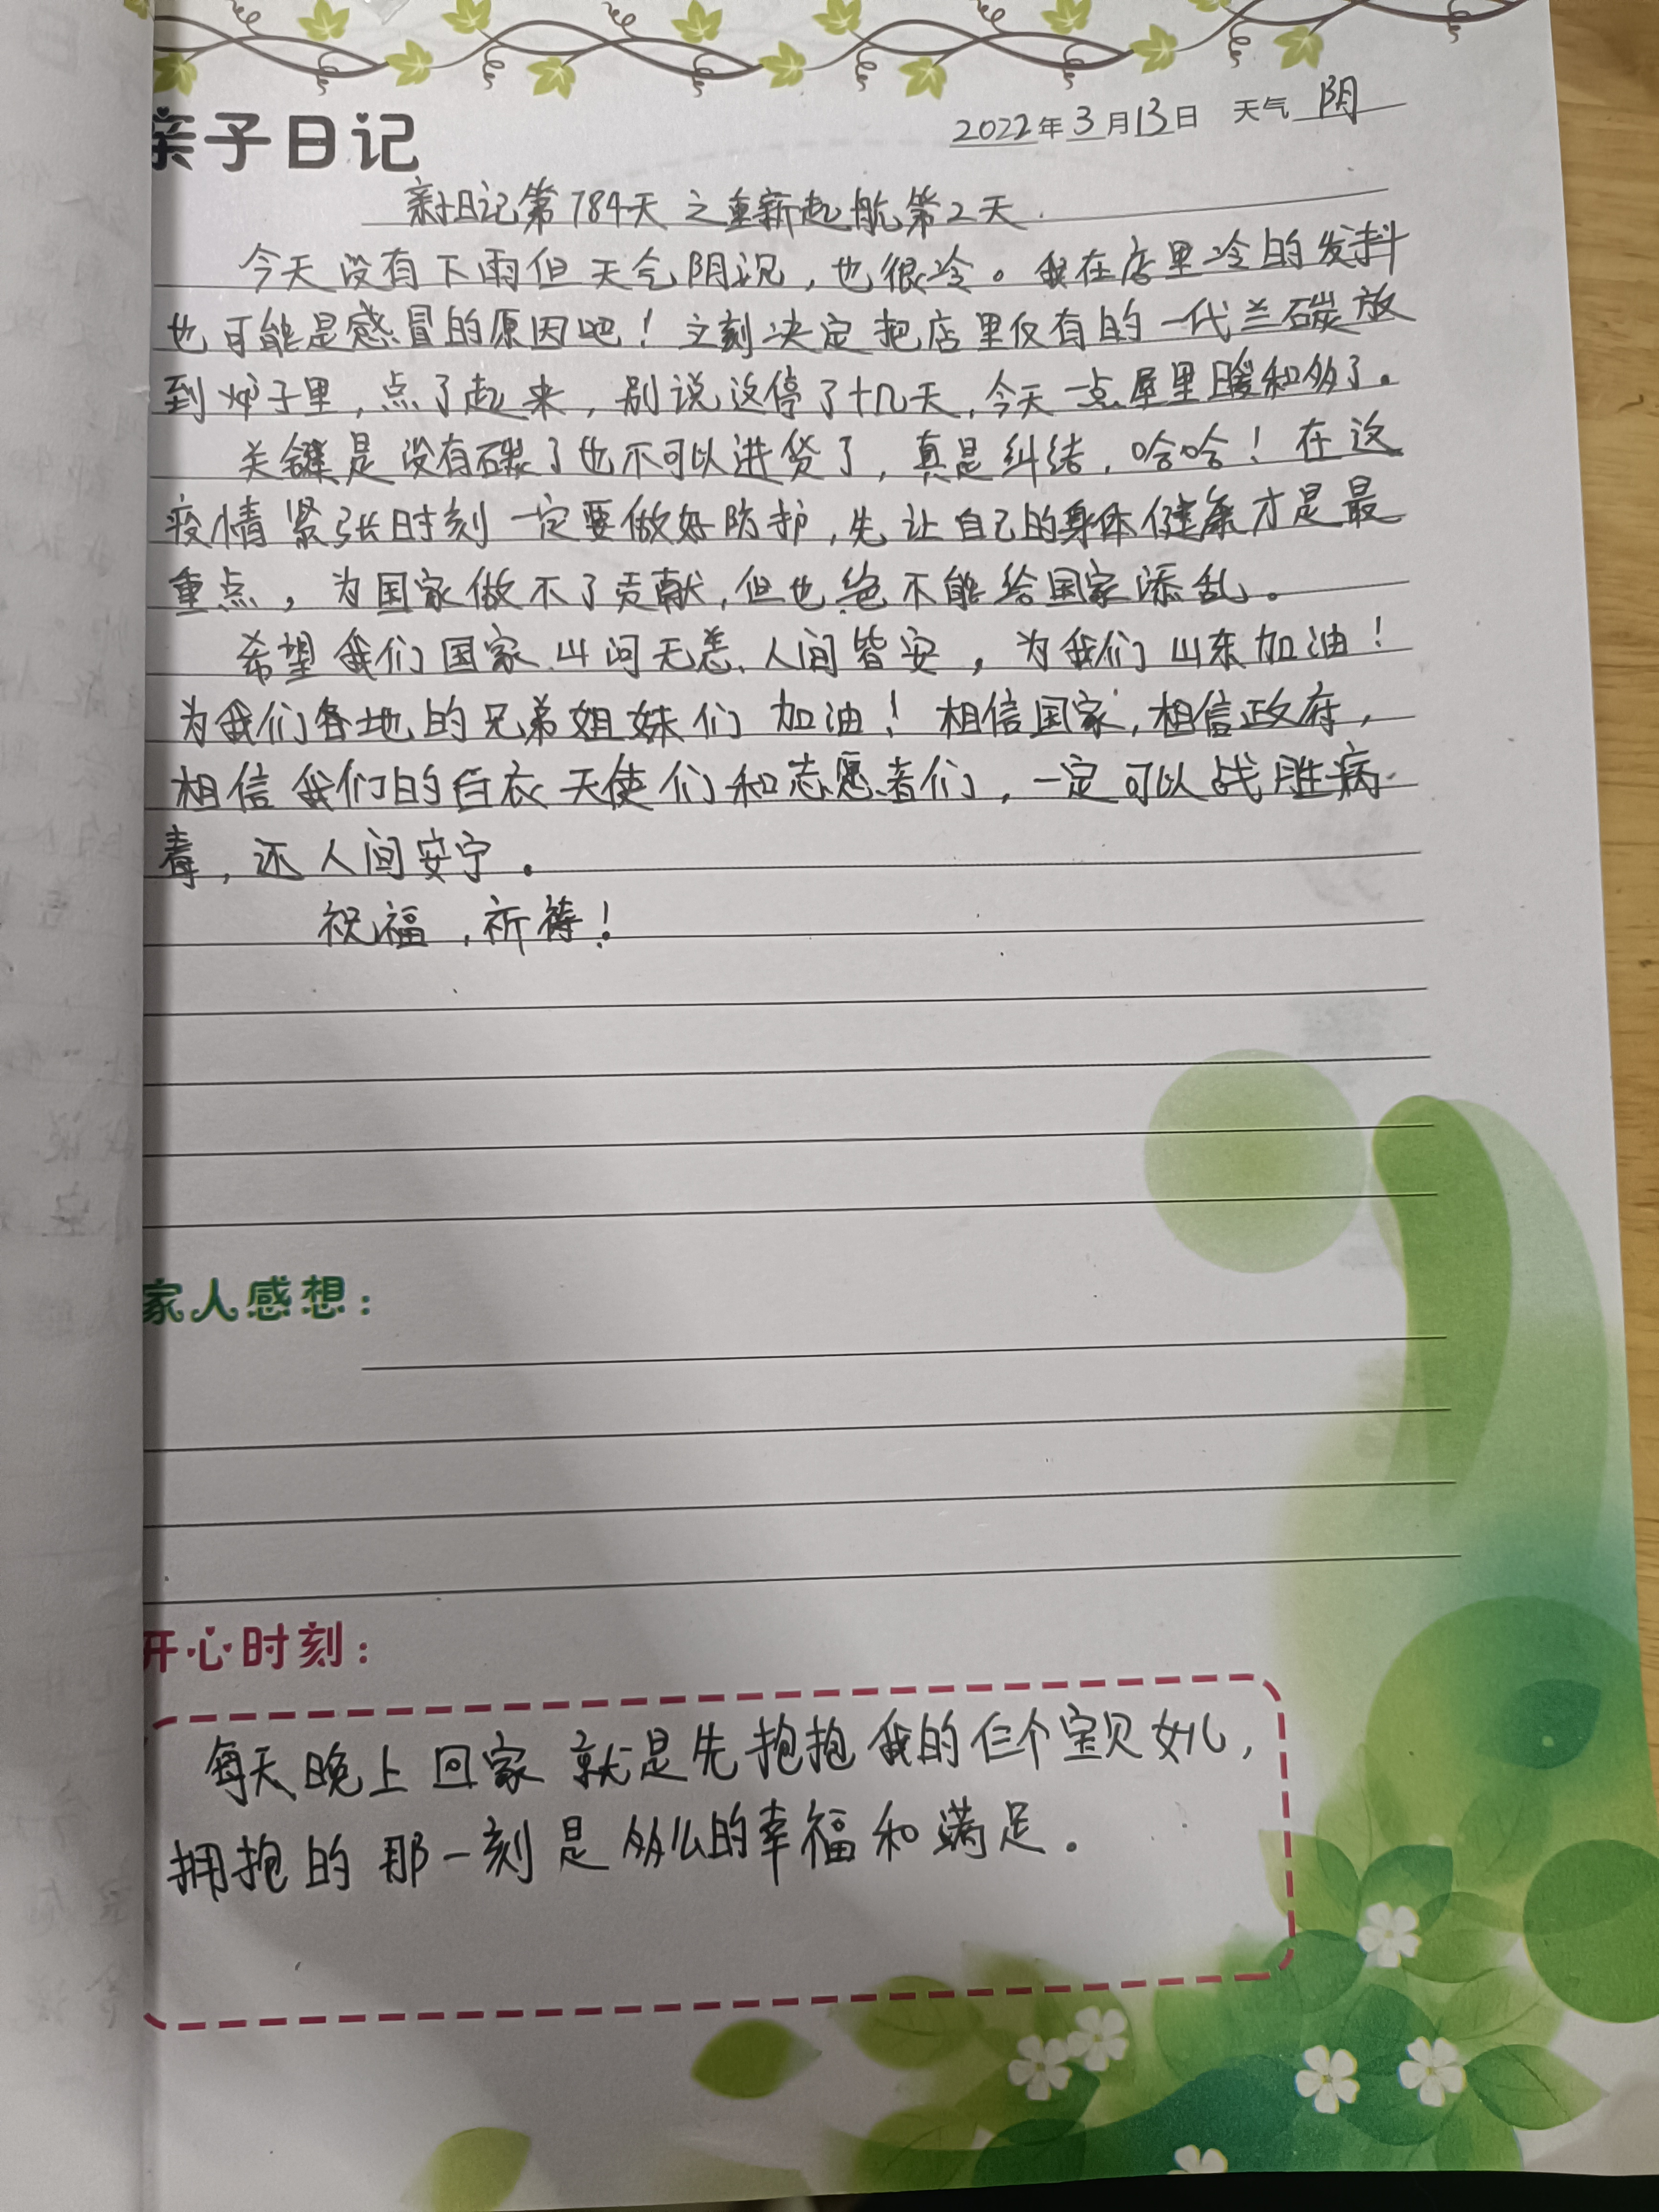 亲子日记
2022年3月13日 天气 阴
亲子日记第784天 之重新起航第2天.
今天没有下雨但天气阴沉，也很冷。我在店里冷的发抖
也可能是感冒的原因吧！立刻决定把店里仅有的一代兰碳放
到炉子里，点了起来，别说这停了十几天，今天一点屋里暖和多了。
关键是没有碳了也不可以进货了，真是纠结，哈哈！在这
疫情紧张时刻一定要做好防护，先让自己的身体健康才是最
重点，为国家做不了贡献，但也绝不能给国家添乱。
希望我们国家山河无恙、人间皆安，为我们山东加油！
为我们各地的兄弟姐妹们加油！相信国家，相信政府，
相信我们的白衣天使们和志愿者们，一定可以战胜病
毒，还人间安宁。
祝福，祈祷！
家人感想：
开心时刻：
每天晚上回家就是先抱抱我的仨个宝贝女儿，
拥抱的那一刻是多么的幸福和满足。